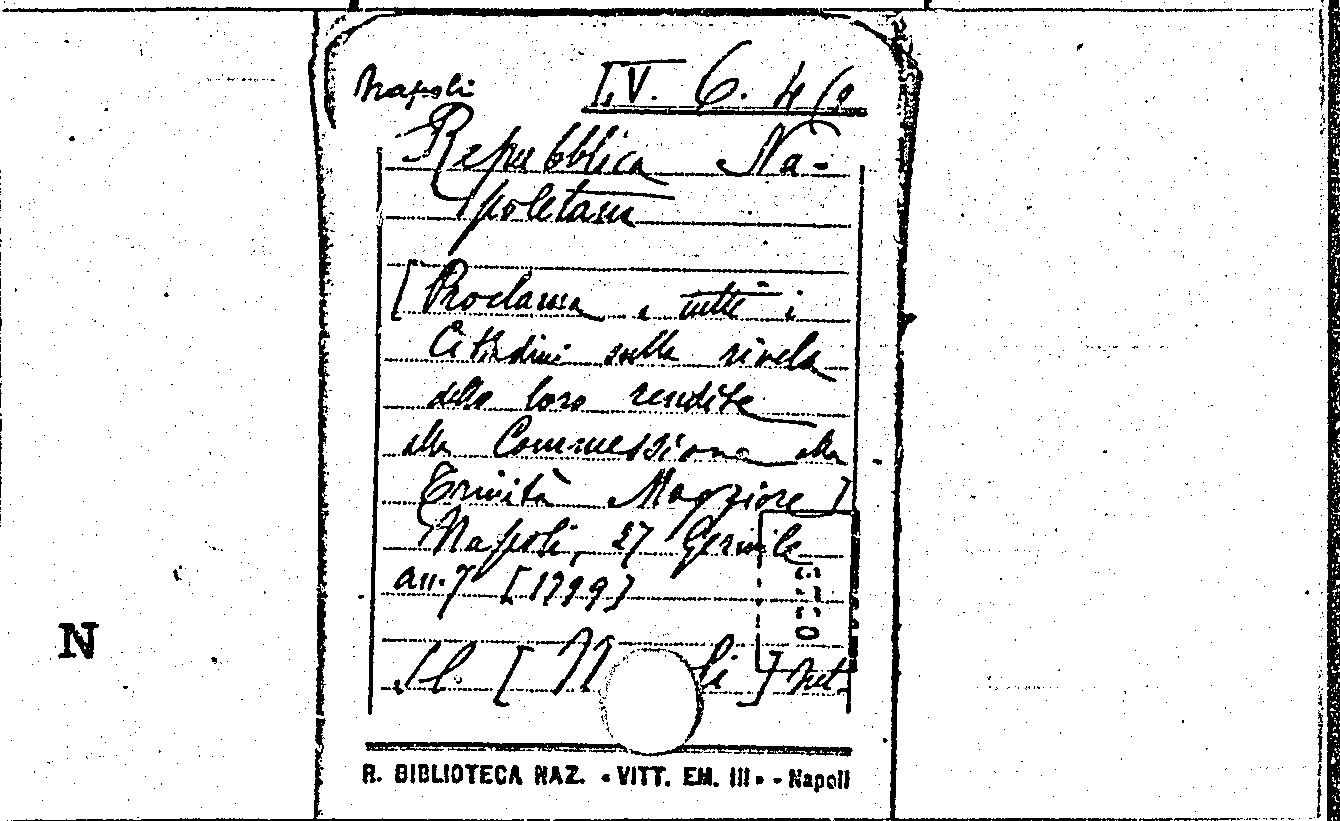 Napoli
Repubblica Na-
poletana
[Proclama a tutti i
Cittadini sulla rivela
delle loro rendite
alla Commessione alla
Trinità Maggiore]
Napoli, 27 Germile
an. 7 [1799]
N
R. BIBLIOTECA NAZ. «VITT. EM. III» - Napoli